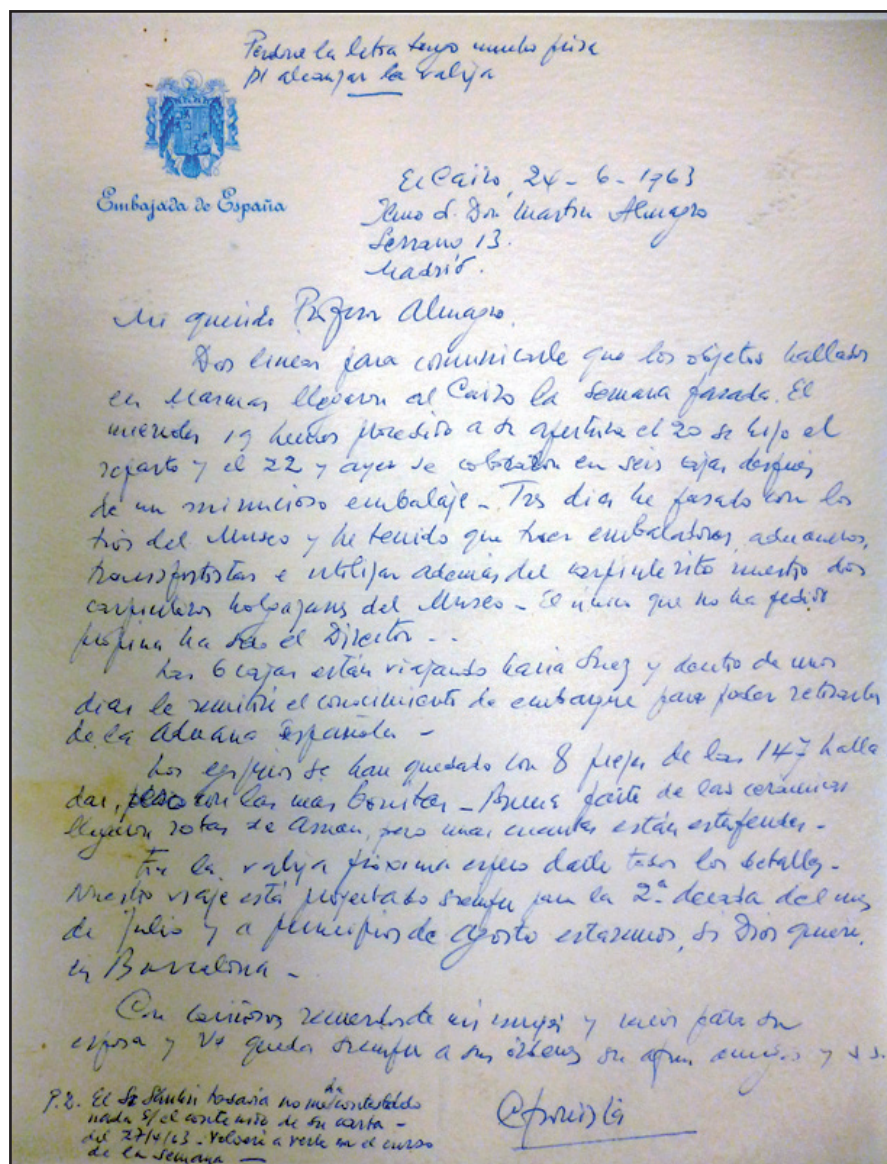 Perdone la letra tengo mucha prisa
pª alcanzar la valija
Embajada de España
El Cairo, 24-6-1963
Ilmo S. Don Martin Almagro
Serrano 13.
Madrid.
Mi querido Profesor Almagro.
Dos lineas para comunicarle que los objetos hallados
en Masmas llegaron al Cairo la semana pasada. El
miercoles 19 hemos procedido a su apertura el 20 se hizo el
reparto y el 22 y ayer se colocaron en seis cajas después
de un minucioso embalaje - Tres dias he pasado con los
tios del Museo y he tenido que traer embaladores, aduaneros,
transportistas e utilizar además del carpinterito nuestro dos
carpinteros holgazanes del Museo - El único que no ha pedido
propina ha sido el Director...
Las 6 cajas están viajando hacia Suez y dentro de unos
dias le remitiré el conocimiento de embarque para poder retirarlas
de la Aduana española -
Los egipcios se han quedado con 8 piezas de las 147 halla
das, pero con las mas bonitas - Buena parte de las cerámicas
llegaron rotas de Asuan, pero unas cuantas están estupendas -
En la valija próxima espero darle todos los detalles -
Nuestro viaje está proyectado siempre para la 2ª decada del mes
de Julio y a principios de Agosto estaremos, si Dios quiere,
en Barcelona -
Con cariñosos recuerdos de mi mujer y mios para su
esposa y Vd queda siempre a sus órdenes su afmo amigo y s.s.
P.D. El Sr Shukri todavia no me ha contestado
nada s/ el contenido de su carta -
del 27/4/63 - Volveré a verle en el curso
de la semana -